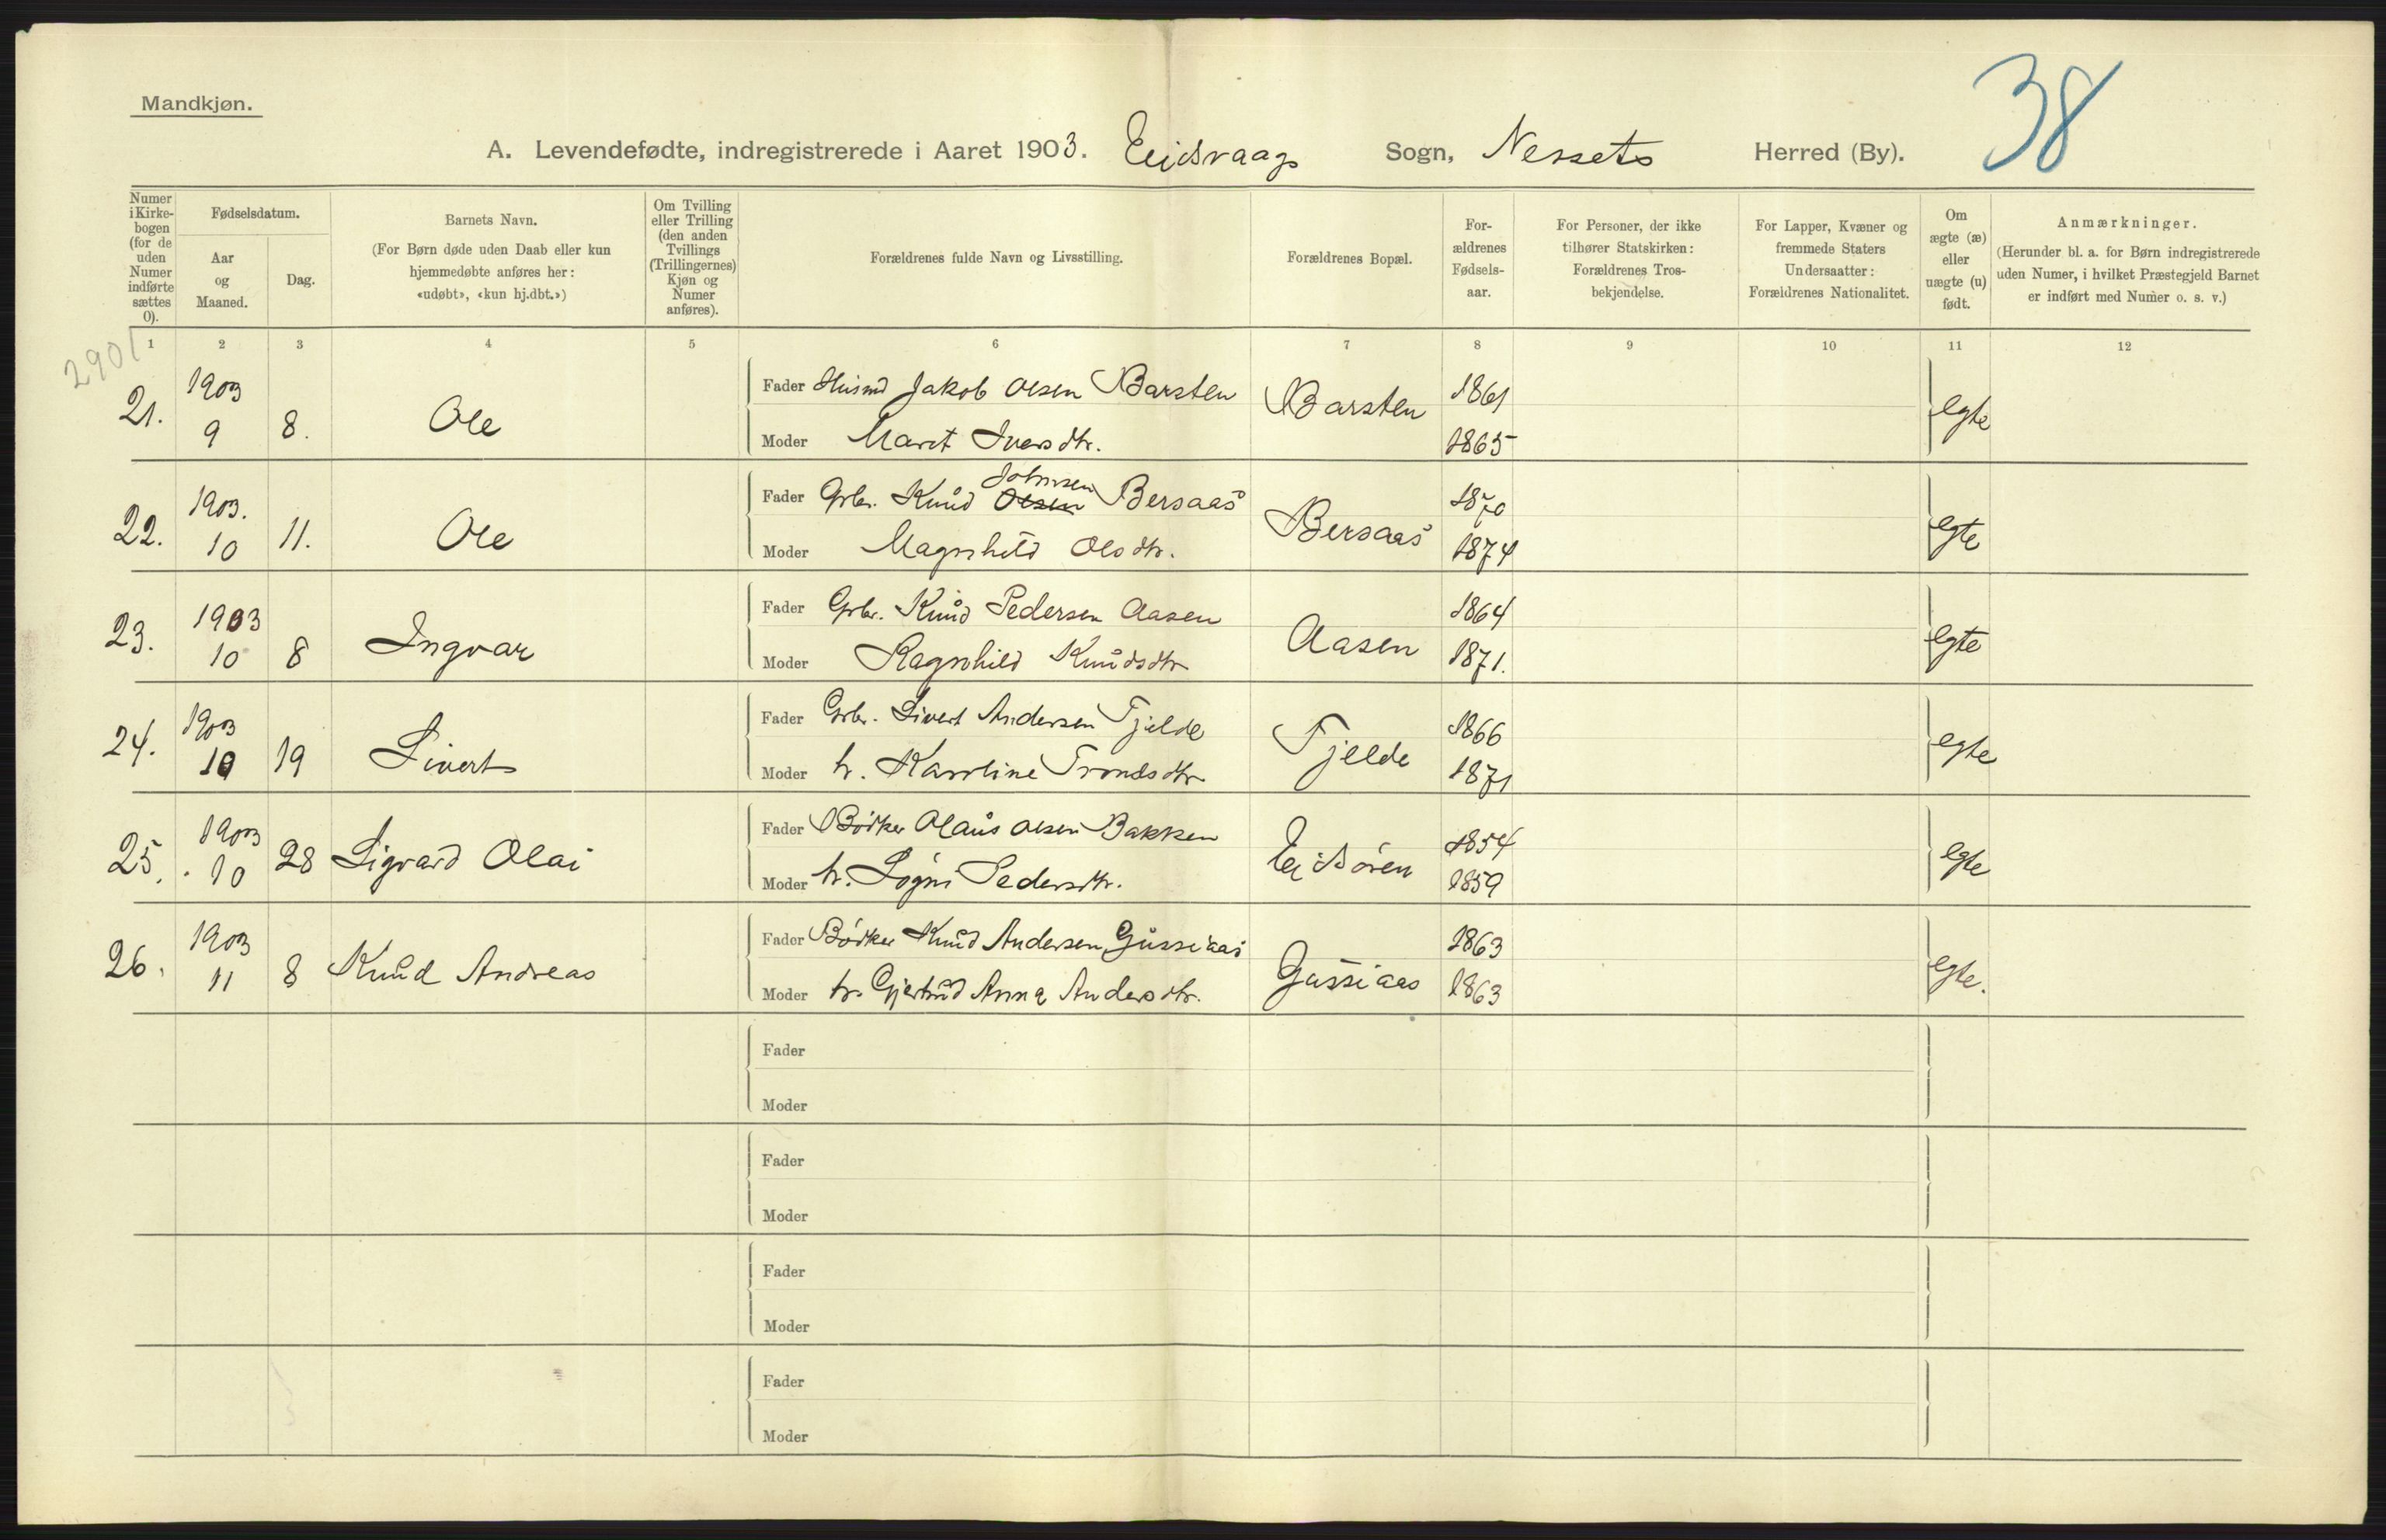 Mandkjøn.
38
A. Levendefødte, indregistrerede i Aaret 1903. Eidsvaags Sogn, Nessets Herred (By).
Numer i Kirkebogen (for de uden Numer indførte sættes 0).
Fødselsdatum.
Aar og Maaned.
Dag.
Barnets Navn.
(For Børn døde uden Daab eller kun hjemmedøbte anføres her: «udøbt», «kun hj.dbt.»)
Om Tvilling eller Trilling (den anden Tvillings (Trillingernes) Kjøn og Numer anføres).
Forældrenes fulde Navn og Livsstilling.
Forældrenes Bopæl.
Forældrenes Fødselsaar.
For Personer, der ikke tilhører Statskirken: Forældrenes Trosbekjendelse.
For Lapper, Kvæner og fremmede Staters Undersaatter: Forældrenes Nationalitet.
Om ægte (æ) eller uægte (u) født.
Anmærkninger.
(Herunder bl. a. for Børn indregistrerede uden Numer, i hvilket Præstegjeld Barnet er indført med Numer o. s. v.)
1 2 3 4 5 6 7 8 9 10 11 12
2901
21. 1903 9 8. Ole Fader Husmd Jakob Olsen Barsten Barsten 1861 egte
Moder Marit Iversdtr. 1865
22. 1903. 10 11. Ole Fader Grbr. Knud Olsen Johnsen Bersaas Bersaas 1870 egte
Moder Magnhild Olsdtr. 1874
23. 1903 10 8 Ingvar Fader Grbr. Knud Pedersen Aasen Aasen 1864 egte
Moder Ragnhild Knudsdtr 1871.
24. 1903 10 19 Sivert Fader Grbr. Sivert Andersen Fjelde Fjelde 1866 egte
Moder h. Karoline Trondsdtr 1871
25. 1903 10 28 Sigvard Olai Fader Bödker Olaus Olsen Bakken Eidsören 1854 egte
Moder h. Pedersdtr. 1859
26. 1903 11 8 Knud Andreas Fader Bödker Knud Andersen Gussiaas Gussiaas 1863 egte.
Moder h. Gjertrud Anna Andersdtr. 1863
Fader
Moder
Fader
Moder
Fader
Moder
Fader
Moder